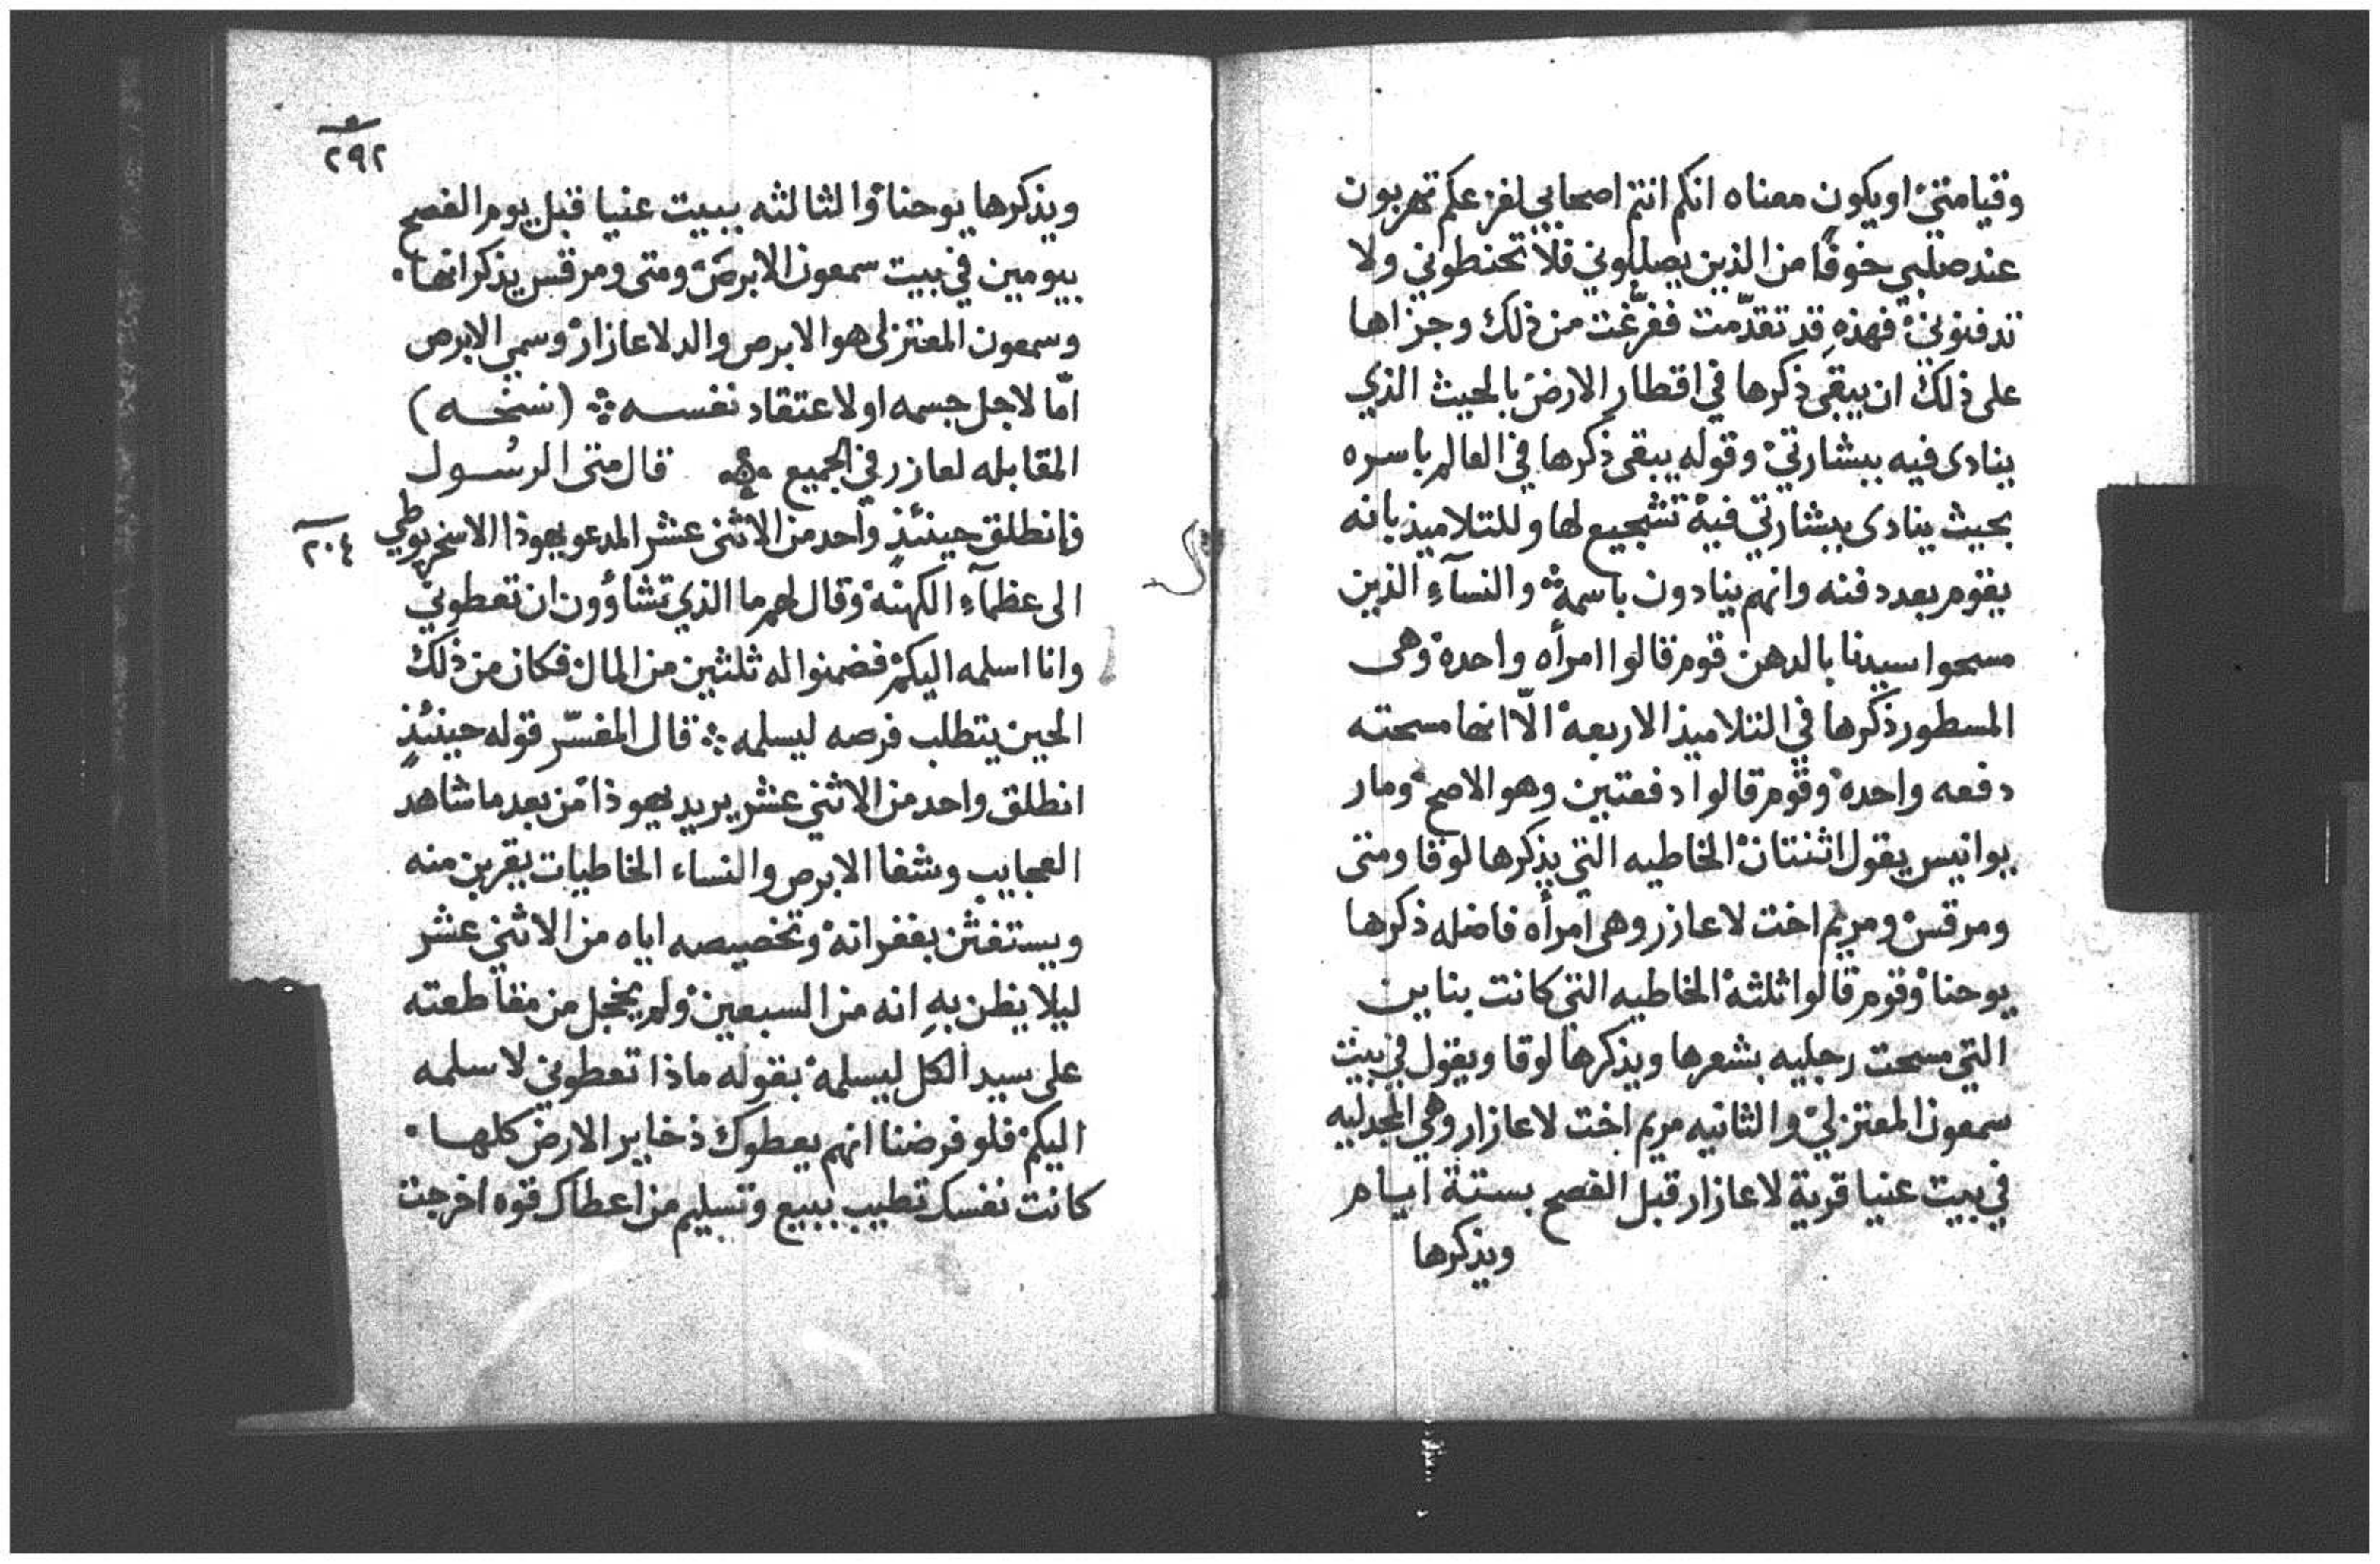 وقيامتي او يكون معناه انكم انتم اصحابي لفزعكم تهربون
عند صلبي خوفًا من الذين يصلبوني فلا تحنطوني ولا
تدفنوني فهذهِ قد تقدّمت ففرّغت من ذلك وجزاها
على ذلك ان يبقى ذكرها في اقطار الارض بالحيث الذي
ينادى فيه ببشارتي وقوله يبقى ذكرها في العالم باسره
بحيث ينادى ببشارتي فيه تشجيع لها وللتلاميذ بانه
يقوم بعد دفنه وانهم ينادون باسمه والنسآءِ الذين
مسحوا سيدنا بالدهن قوم قالوا امرأه واحده وهى
المسطور ذكرها في التلاميذ الاربعه الّا انها مسحته
دفعه واحده وقوم قالوا دفعتين وهو الاصح ومار
يوانيس يقول اثنتان الخاطيه التي يذكرها لوقا ومتى
ومرقس ومريم اخت لاعازر وهى امرأه فاضله ذكرها
يوحنا وقوم قالوا ثلثه الخاطيه التي كانت بنايين
التي مسحت رجليه بشعرها ويذكرها لوقا ويقول في بيت
سمعون المعتزلي والثانيه مريم اخت لاعازار وهي المجدليه
في بيت عنيا قرية لاعازار قبل الفصح بستة ايام
ويذكرها
٢٩٢
ويذكرها يوحنا والثالثه ببيت عنيا قبل يوم الفصح
بيومين في بيت سمعون الابرص ومتى ومرقس يذكرانها
وسمعون المعتزلى هو الابرص والد لاعازار وسمي الابرص
امّا لاجل جسمه او لاعتقاد نفسه (نسخه)
المقابله لعازر في الجميع قال متى الرسُول
فإنطلق حينئذٍ واحد من الاثنى عشر المدعو يهوذا الاسخريوطي
٢٠٤
الى عظمآءِ الكهنه وقال لهم ما الذي تشاؤون ان تعطوني
وانا اسلمه اليكم فضمنوا له ثلثين من المال فكان من ذلك
الحين يتطلب فرصه ليسلمه قال المفسّر قوله حينئذٍ
انطلق واحد من الاثني عشر يريد يهوذا من بعد ما شاهد
العجايب وشفا الابرص والنساء الخاطيات يقربن منه
ويستغثن بغفرانه وتخصيصه اياه من الاثني عشر
ليلا يظن بهِ انه من السبعين ولم يخجل من مقاطعته
على سيد الكل ليسلمه بقوله ماذا تعطوني لاسلمه
اليكم فلو فرضنا انهم يعطوك ذخاير الارض كلها
كانت نفسك تطيب ببيع وتسليم من اعطاك قوه اخرجت